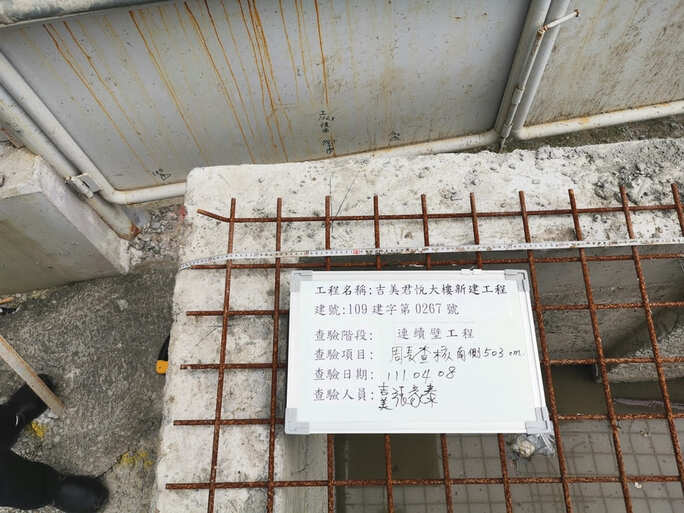 工程名稱:吉美君悅大樓新建工程
建號:109建字第0267號
查驗階段: 連續壁工程
查驗項目: 周長查核南側503cm
查驗日期: 111 04 08
查驗人員: 吉美